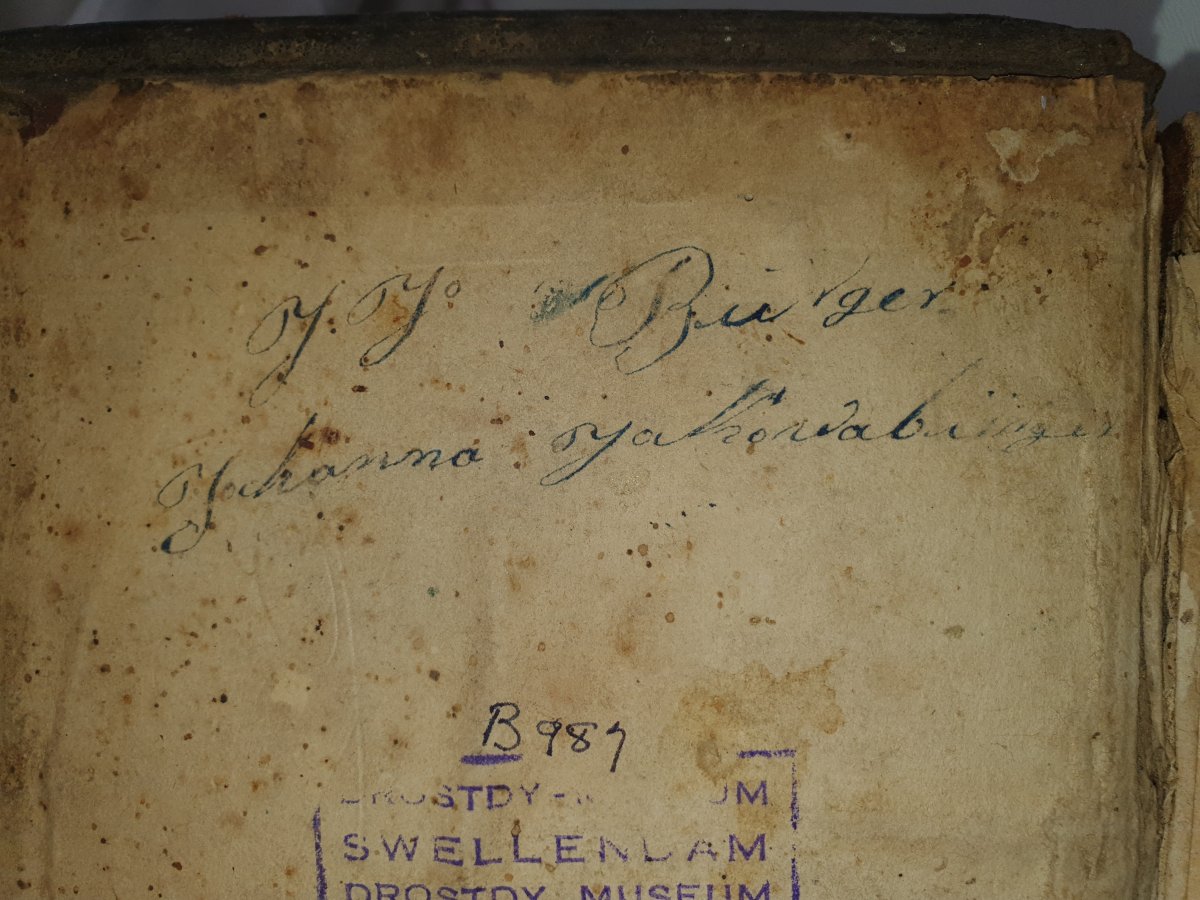 J. J. Bürger
Johanna Jakowa bürger
B987
DROSTDY-MUSEUM
SWELLENDAM
DROSTDY MUSEUM